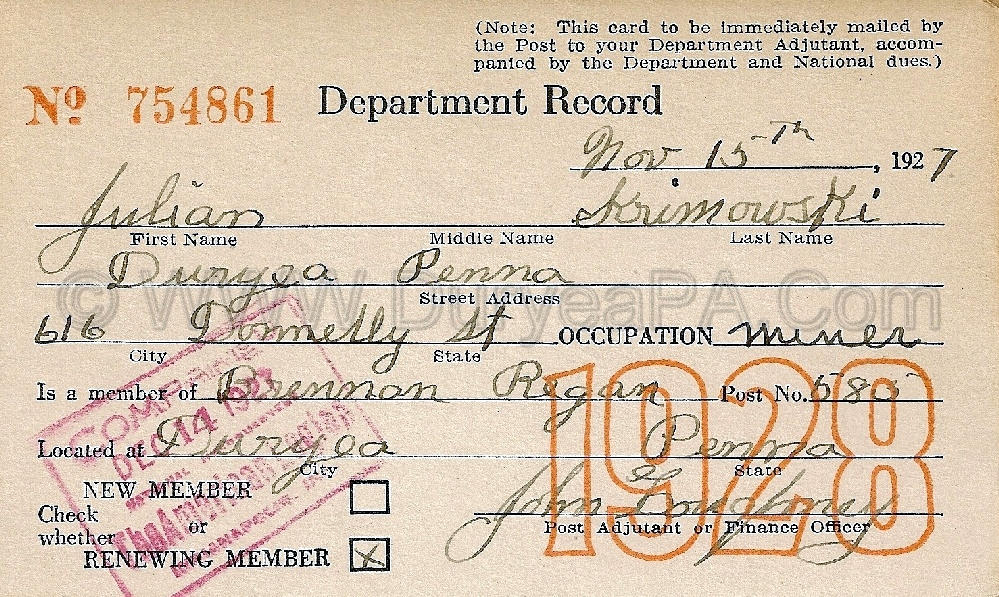 (Note: This card to be immediately mailed by
the Post to your Department Adjutant, accom-
panied by the Department and National dues.)
No. 754861 Department Record
Nov 15th, 1927
Julian Skrimowski
First Name Middle Name Last Name
Duryea Penna
Street Address
616 Donnelly St OCCUPATION Miner
City State
Is a member of Brennan Regan Post No. 585
Located at Duryea Penna
City State
NEW MEMBER
Check
or
whether
RENEWING MEMBER X
John
Post Adjutant or Finance Officer
1928
DEC 14 1927
The American Legion
© WWW.DuryeaPA.Com